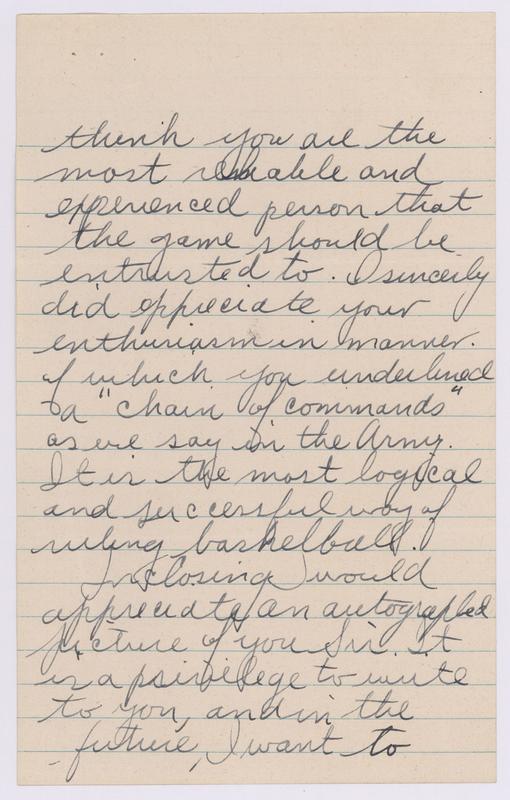 think you are the
most reliable and
experienced person that
the game should be
entrusted to. I sincerly
did appreciate your
enthusiasm in manner.
of which you underlined
a "chain of commands"
as we say in the Army.
It is the most logical
and successful way of
ruling basketball.
In closing I would
appreciate an autographed
picture of you Sir. It
is a privilege to write
to you, and in the
future, I want to